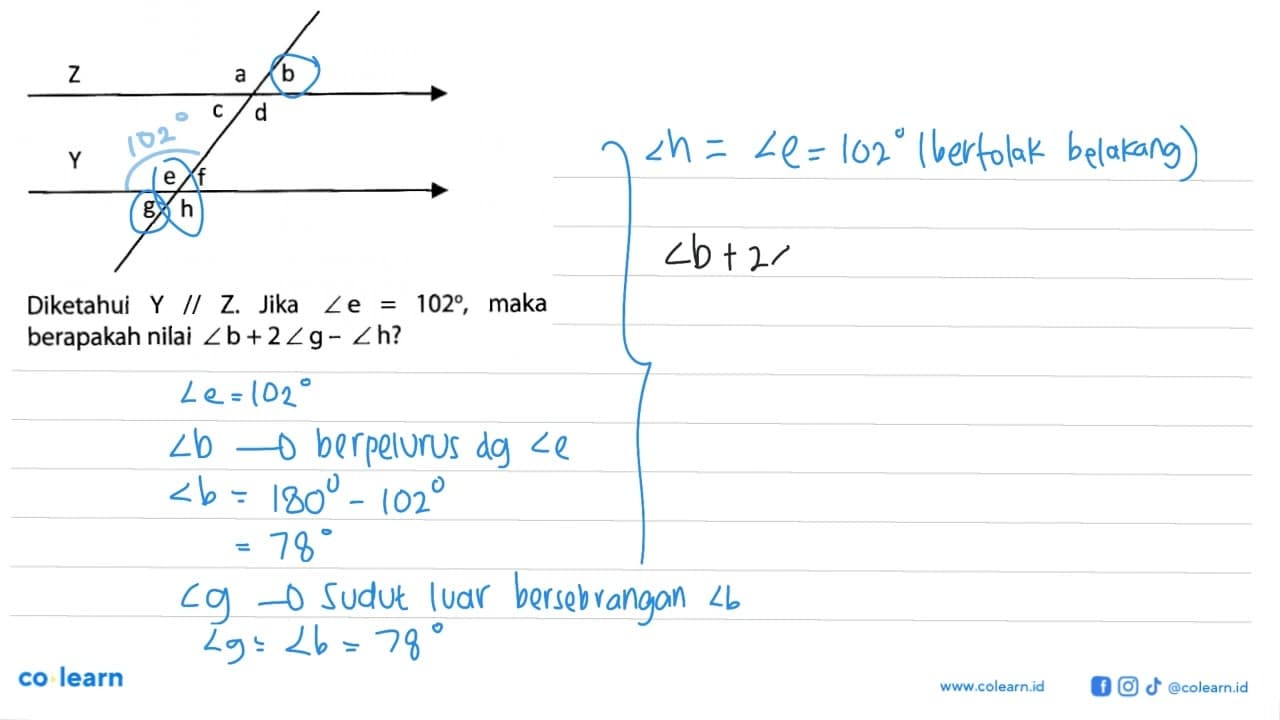 Z
a
b
c
d
102°
Y
e
f
g
h
Diketahui Y // Z. Jika ∠e = 102º, maka
berapakah nilai ∠b + 2∠g – ∠h?
∠e = 102°
∠b → berpelurus dg ∠e
∠b = 180° - 102°
= 78°
∠g → Sudut luar bersebrangan ∠b
∠g = ∠b = 78°
∠h = ∠e = 102° (bertolak belakang)
∠b + 2
co learn
www.colearn.id
@colearn.id